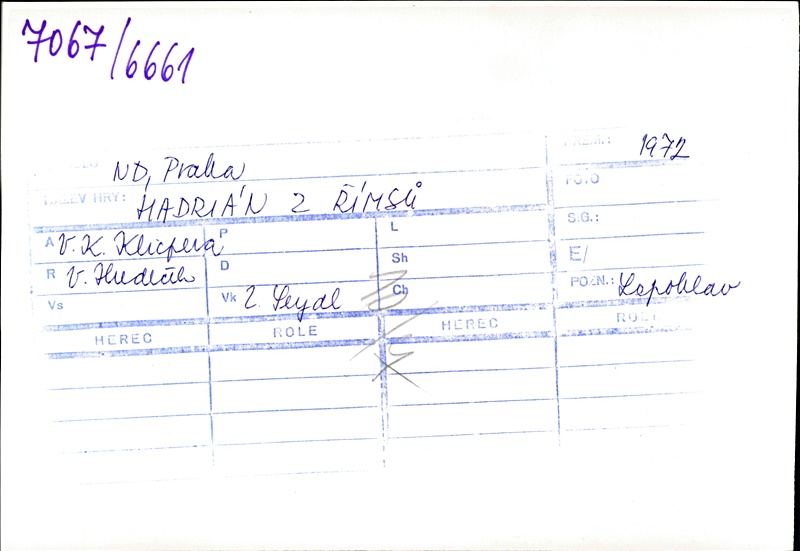 7067/6661
ND, Praha
PREM.: 1972
NÁZEV HRY: HADRIÁN Z ŘÍMSŮ
FOTO
A V. K. Klicpera P L S.G.:
R V. Hudeček D Sh E/
Vs Vk Z. Seydl Ch POZN.:
HEREC ROLE HEREC ROLE